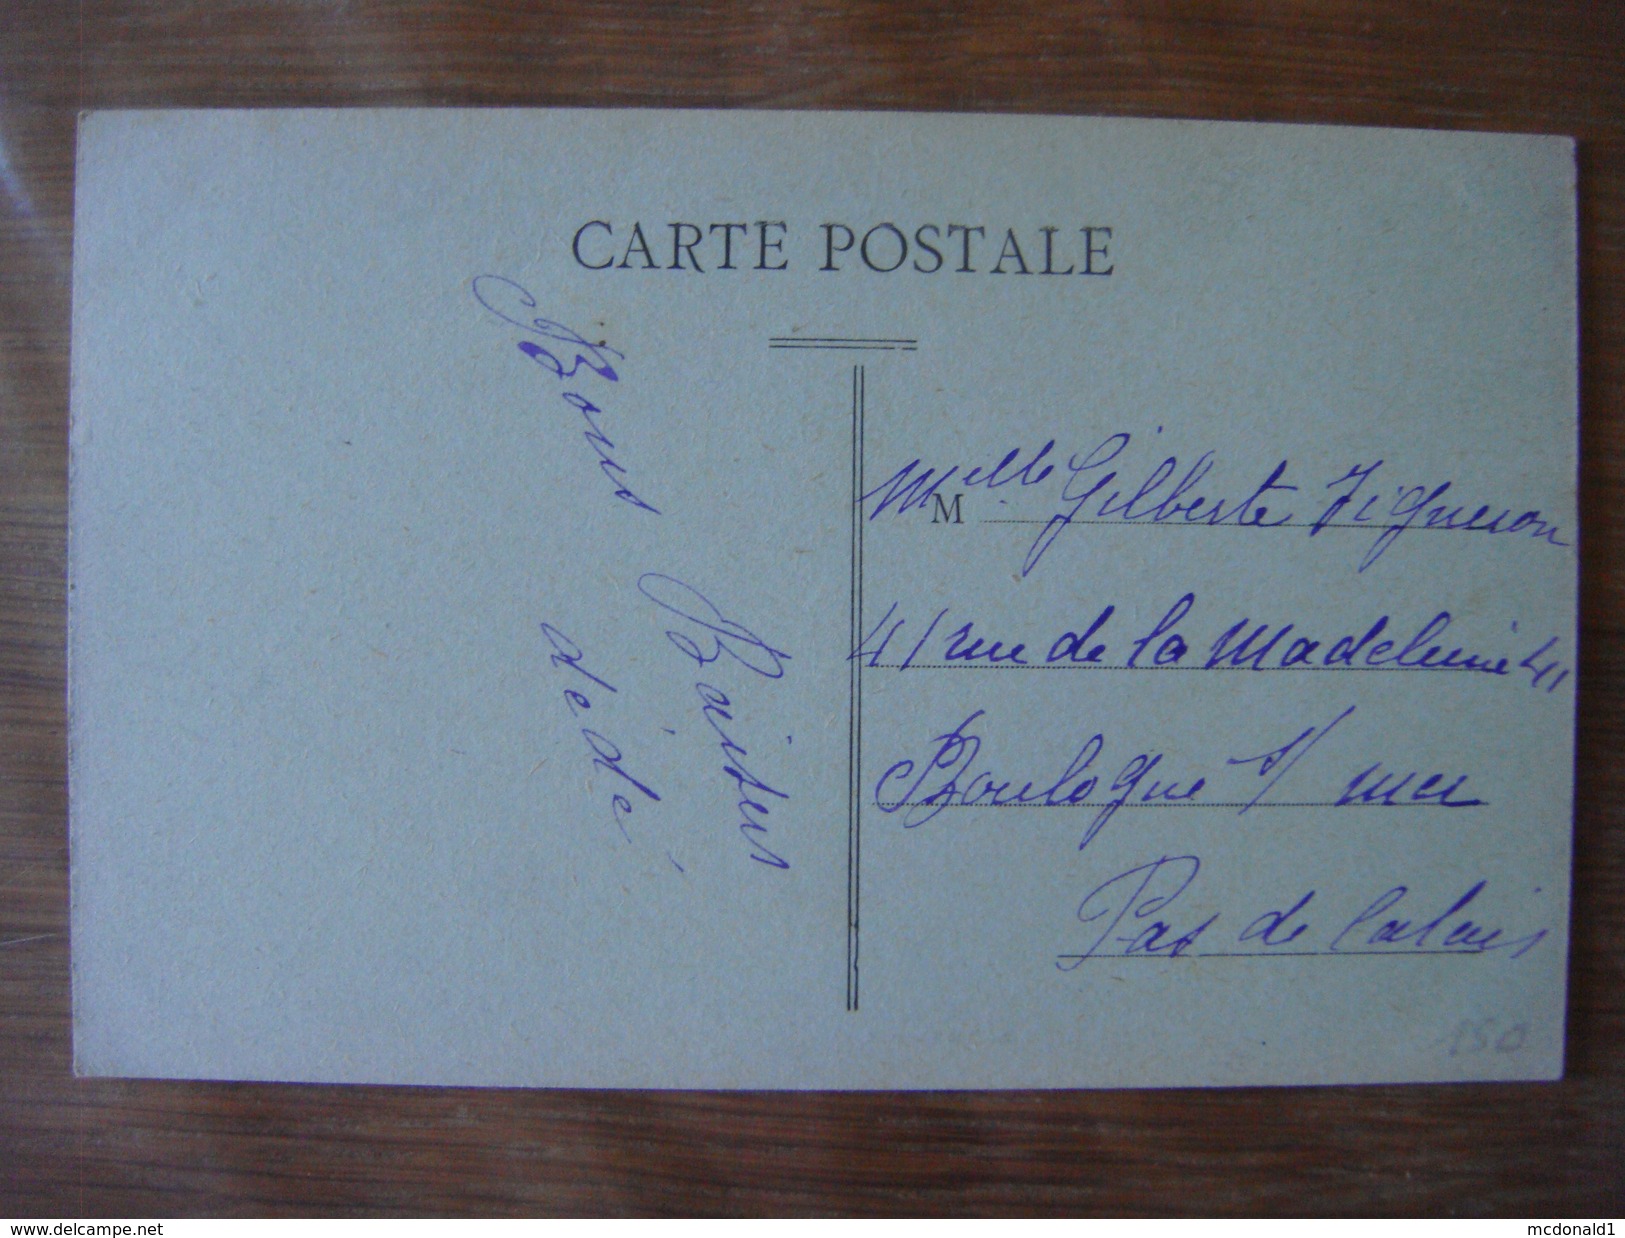 CARTE POSTALE
Bons Baisers
dédé
Melle Gilberte Figueron
M
41 rue de la Madeleine 41
Boulogne s/ mer
Pas de Calais
150
www.delcampe.net
mcdonald1